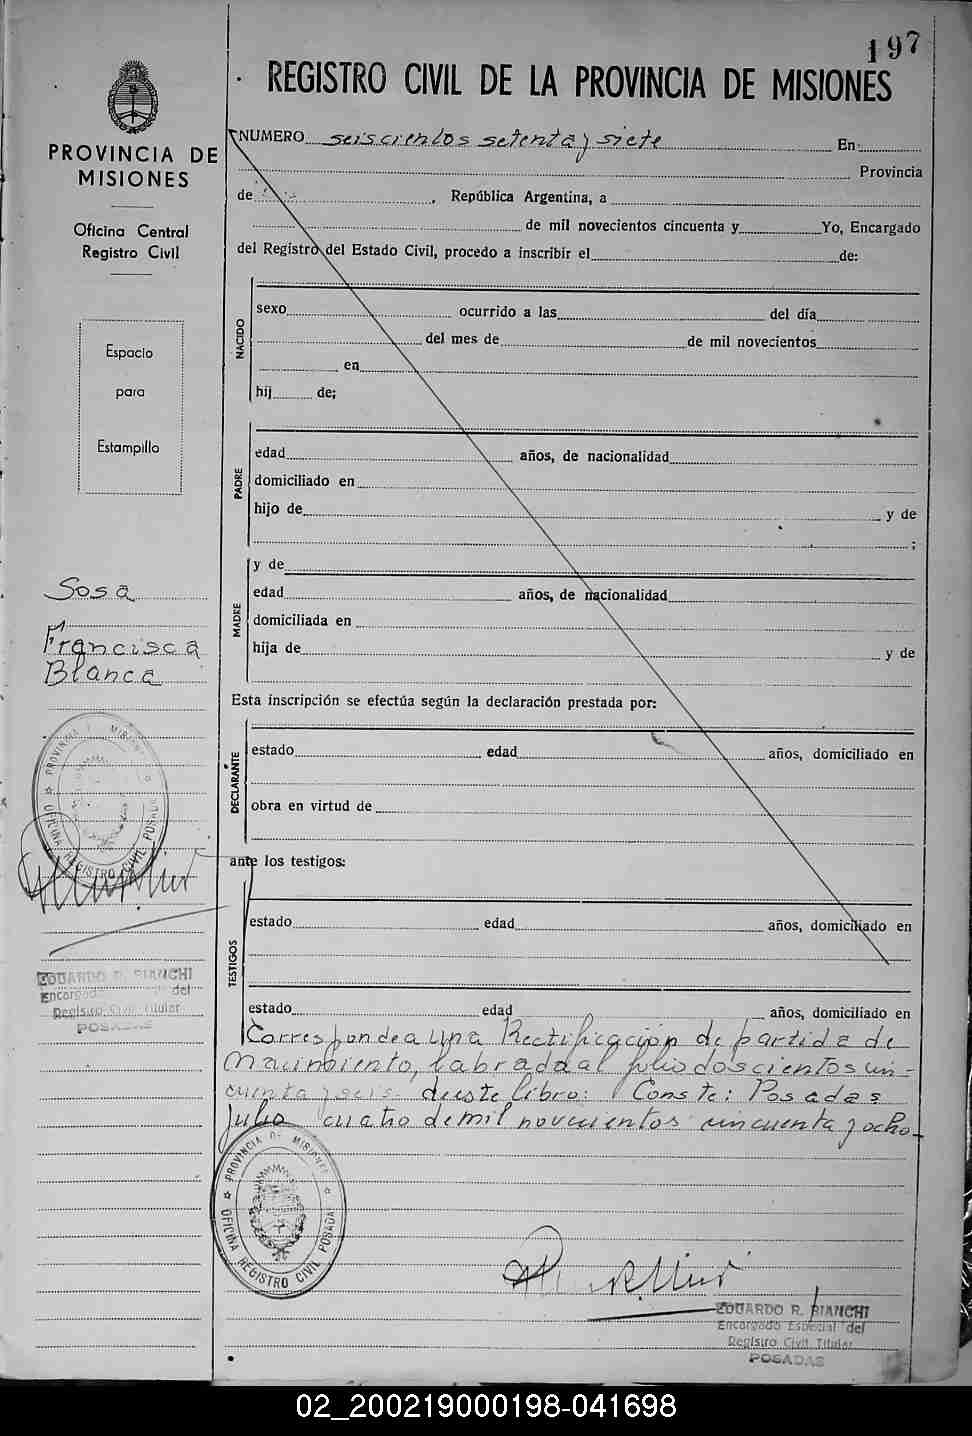 197
REGISTRO CIVIL DE LA PROVINCIA DE MISIONES
PROVINCIA DE
MISIONES
Oficina Central
Registro Civil
Espacio
para
Estampillo
Sosa
Francisca
Blanca
PROVINCIA MISIONES
OFICINA REGISTRO CIVIL POSADAS
EDUARDO R. BIANCHI
Encargado del
Registro Civil Titular
POSADAS
NUMERO seiscientos setenta y siete En
Provincia
de , República Argentina, a
de mil novecientos cincuenta y Yo, Encargado
del Registro del Estado Civil, procedo a inscribir el de:
NACIDO
sexo ocurrido a las del día
del mes de de mil novecientos
en
hij de;
PADRE
edad años, de nacionalidad
domiciliado en
hijo de y de
;
MADRE
y de
edad años, de nacionalidad
domiciliada en
hija de y de
Esta inscripción se efectúa según la declaración prestada por:
DECLARANTE
estado edad años, domiciliado en
obra en virtud de
ante los testigos:
TESTIGOS
estado edad años, domiciliado en
estado edad años, domiciliado en
Corresponde a una Rectificación de partida de
Nacimiento, labrada al folio doscientos cin-
cuenta y seis de este libro: Conste: Posadas
Julio cuatro de mil novecientos cincuenta y ocho-
PROVINCIA DE MISIONES
OFICINA REGISTRO CIVIL POSADAS
EDUARDO R. BIANCHI
Encargado Especial del
Registro Civil Titular
POSADAS
02_200219000198-041698